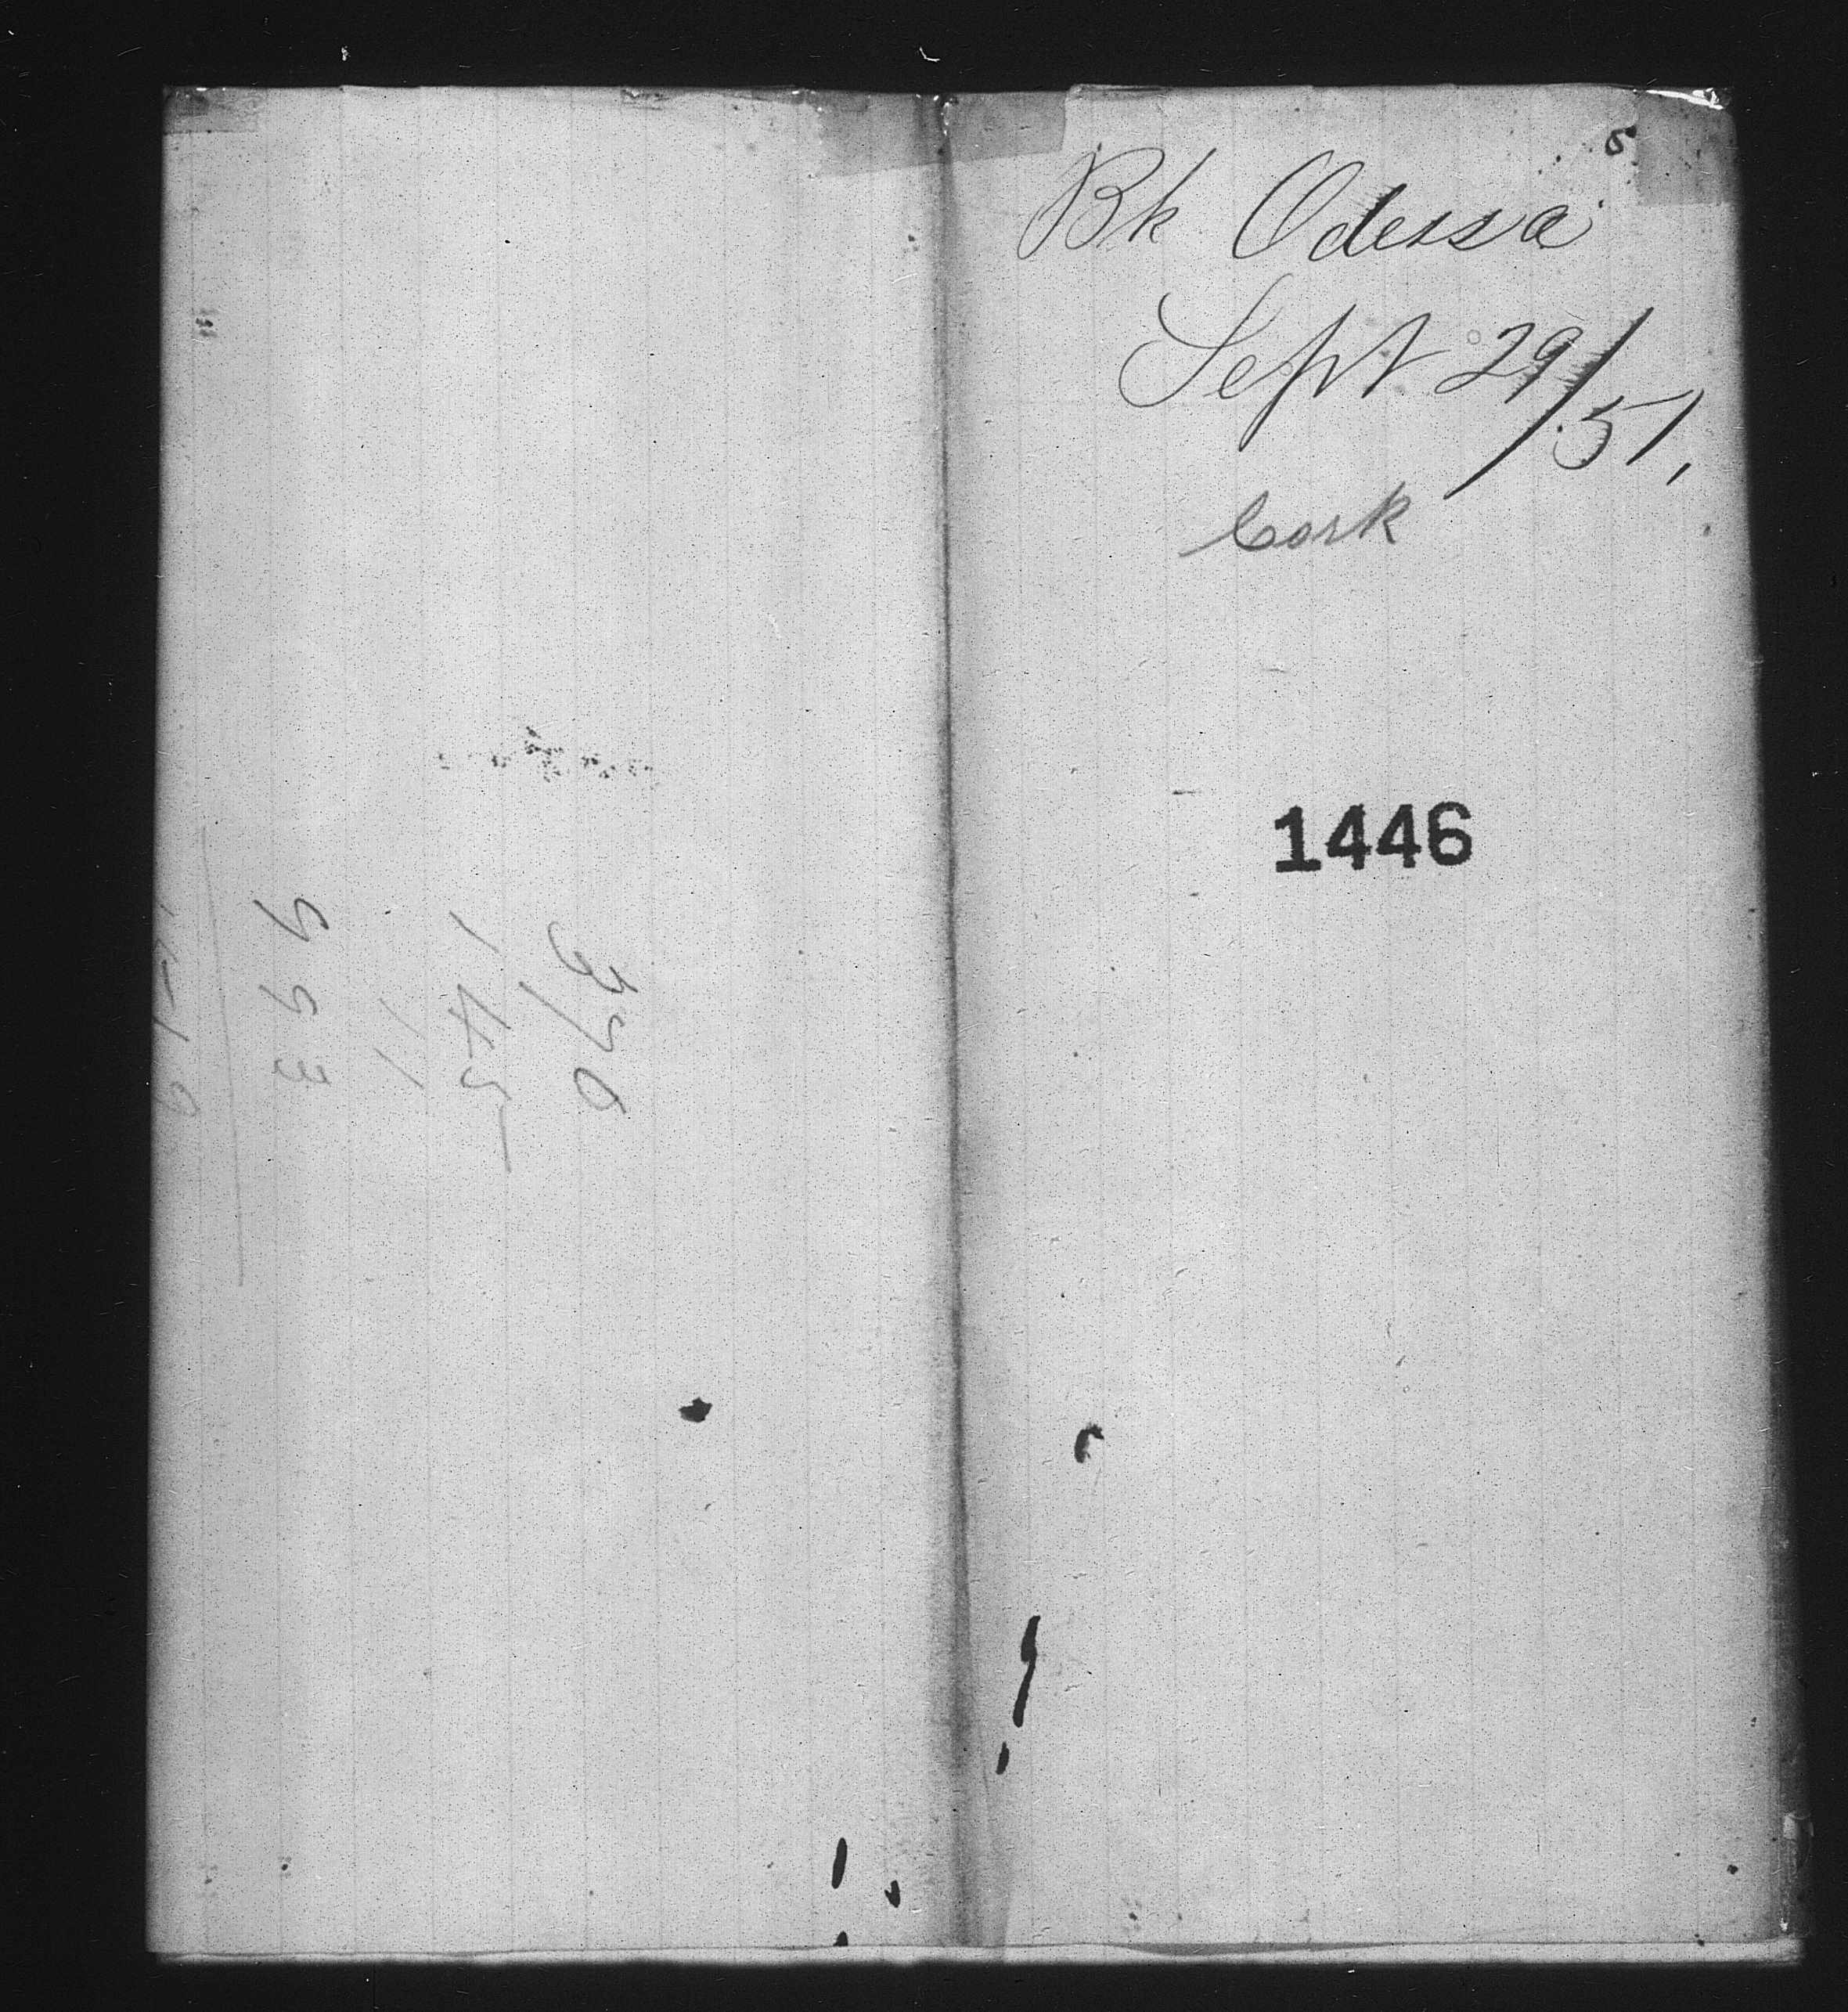 5
Bk Odessa
Sept 29/51,
Cork
1446
370
145
11
993
1519